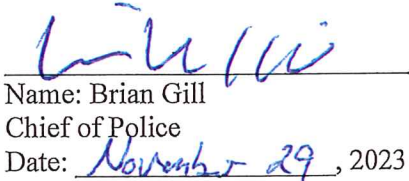 Name: Brian Gill
Chief of Police
Date: November 29, 2023